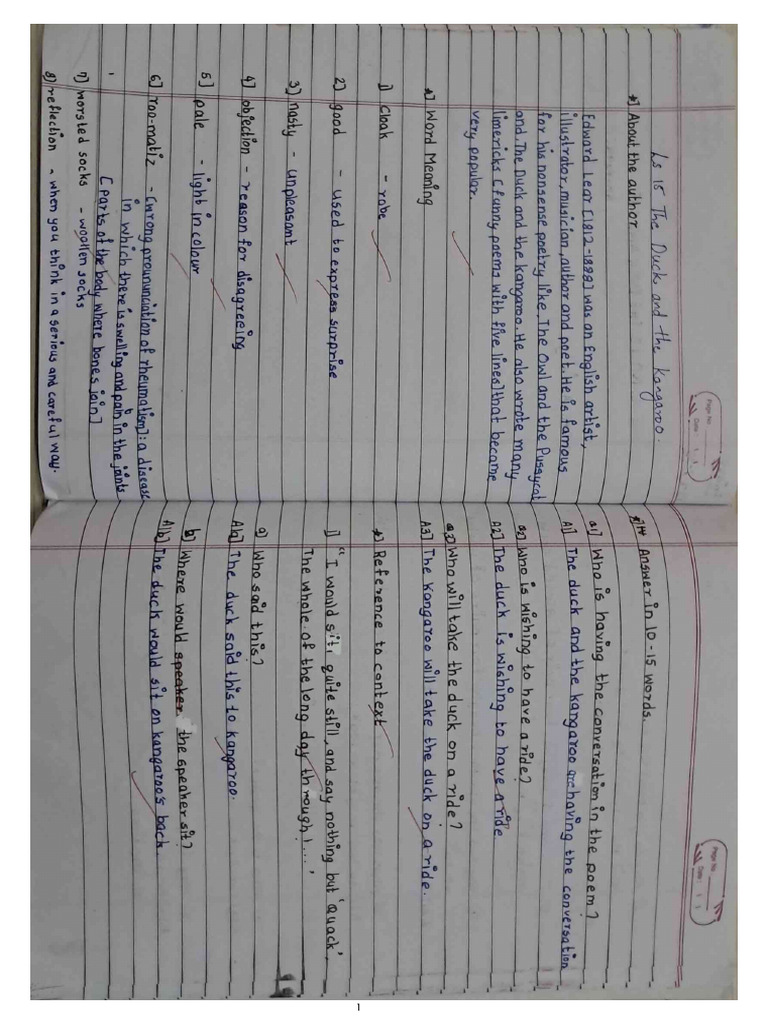 Page No.
Date
Ls 15 The Duck and the Kangaroo.
*] About the author
Edward Lear [1812-1888] was an English artist,
illustrator, musician, author and poet. He is famous
for his nonsense poetry like The Owl and the Pussycat
and The Duck and the Kangaroo. He also wrote many
limericks [funny poems with five lines] that became
very popular.
*] Word Meaning
1] Cloak - robe
2] good - used to express surprise
3] nasty - unpleasant
4] objection - reason for disagreeing
5] pale - light in colour
6] roo-matiz - [wrong prounciation of rheumatism]: a disease
in which there is swelling and pain in the joints
[parts of the body where bones join]
7] worsted socks - woollen socks
8] reflection - when you think in a serious and careful way.
Page No.
Date
Answer in 10-15 words.
Q1] Who is having the conversation in the poem?
A1] The duck and the kangaroo are having the conversation
Q2] Who is wishing to have a ride?
A2] The duck is wishing to have a ride
Q3] Who will take the duck on a ride?
A3] The kangaroo will take the duck on a ride.
*] Reference to context
1] "I would sit, quite still, and say nothing but 'Quack',
The whole of the long day through!....'
a] Who said this?
A1a] The duck said this to kangaroo.
b] Where would speaker the speaker sit?
A1b] The duck would sit on kangaroo's back.
1